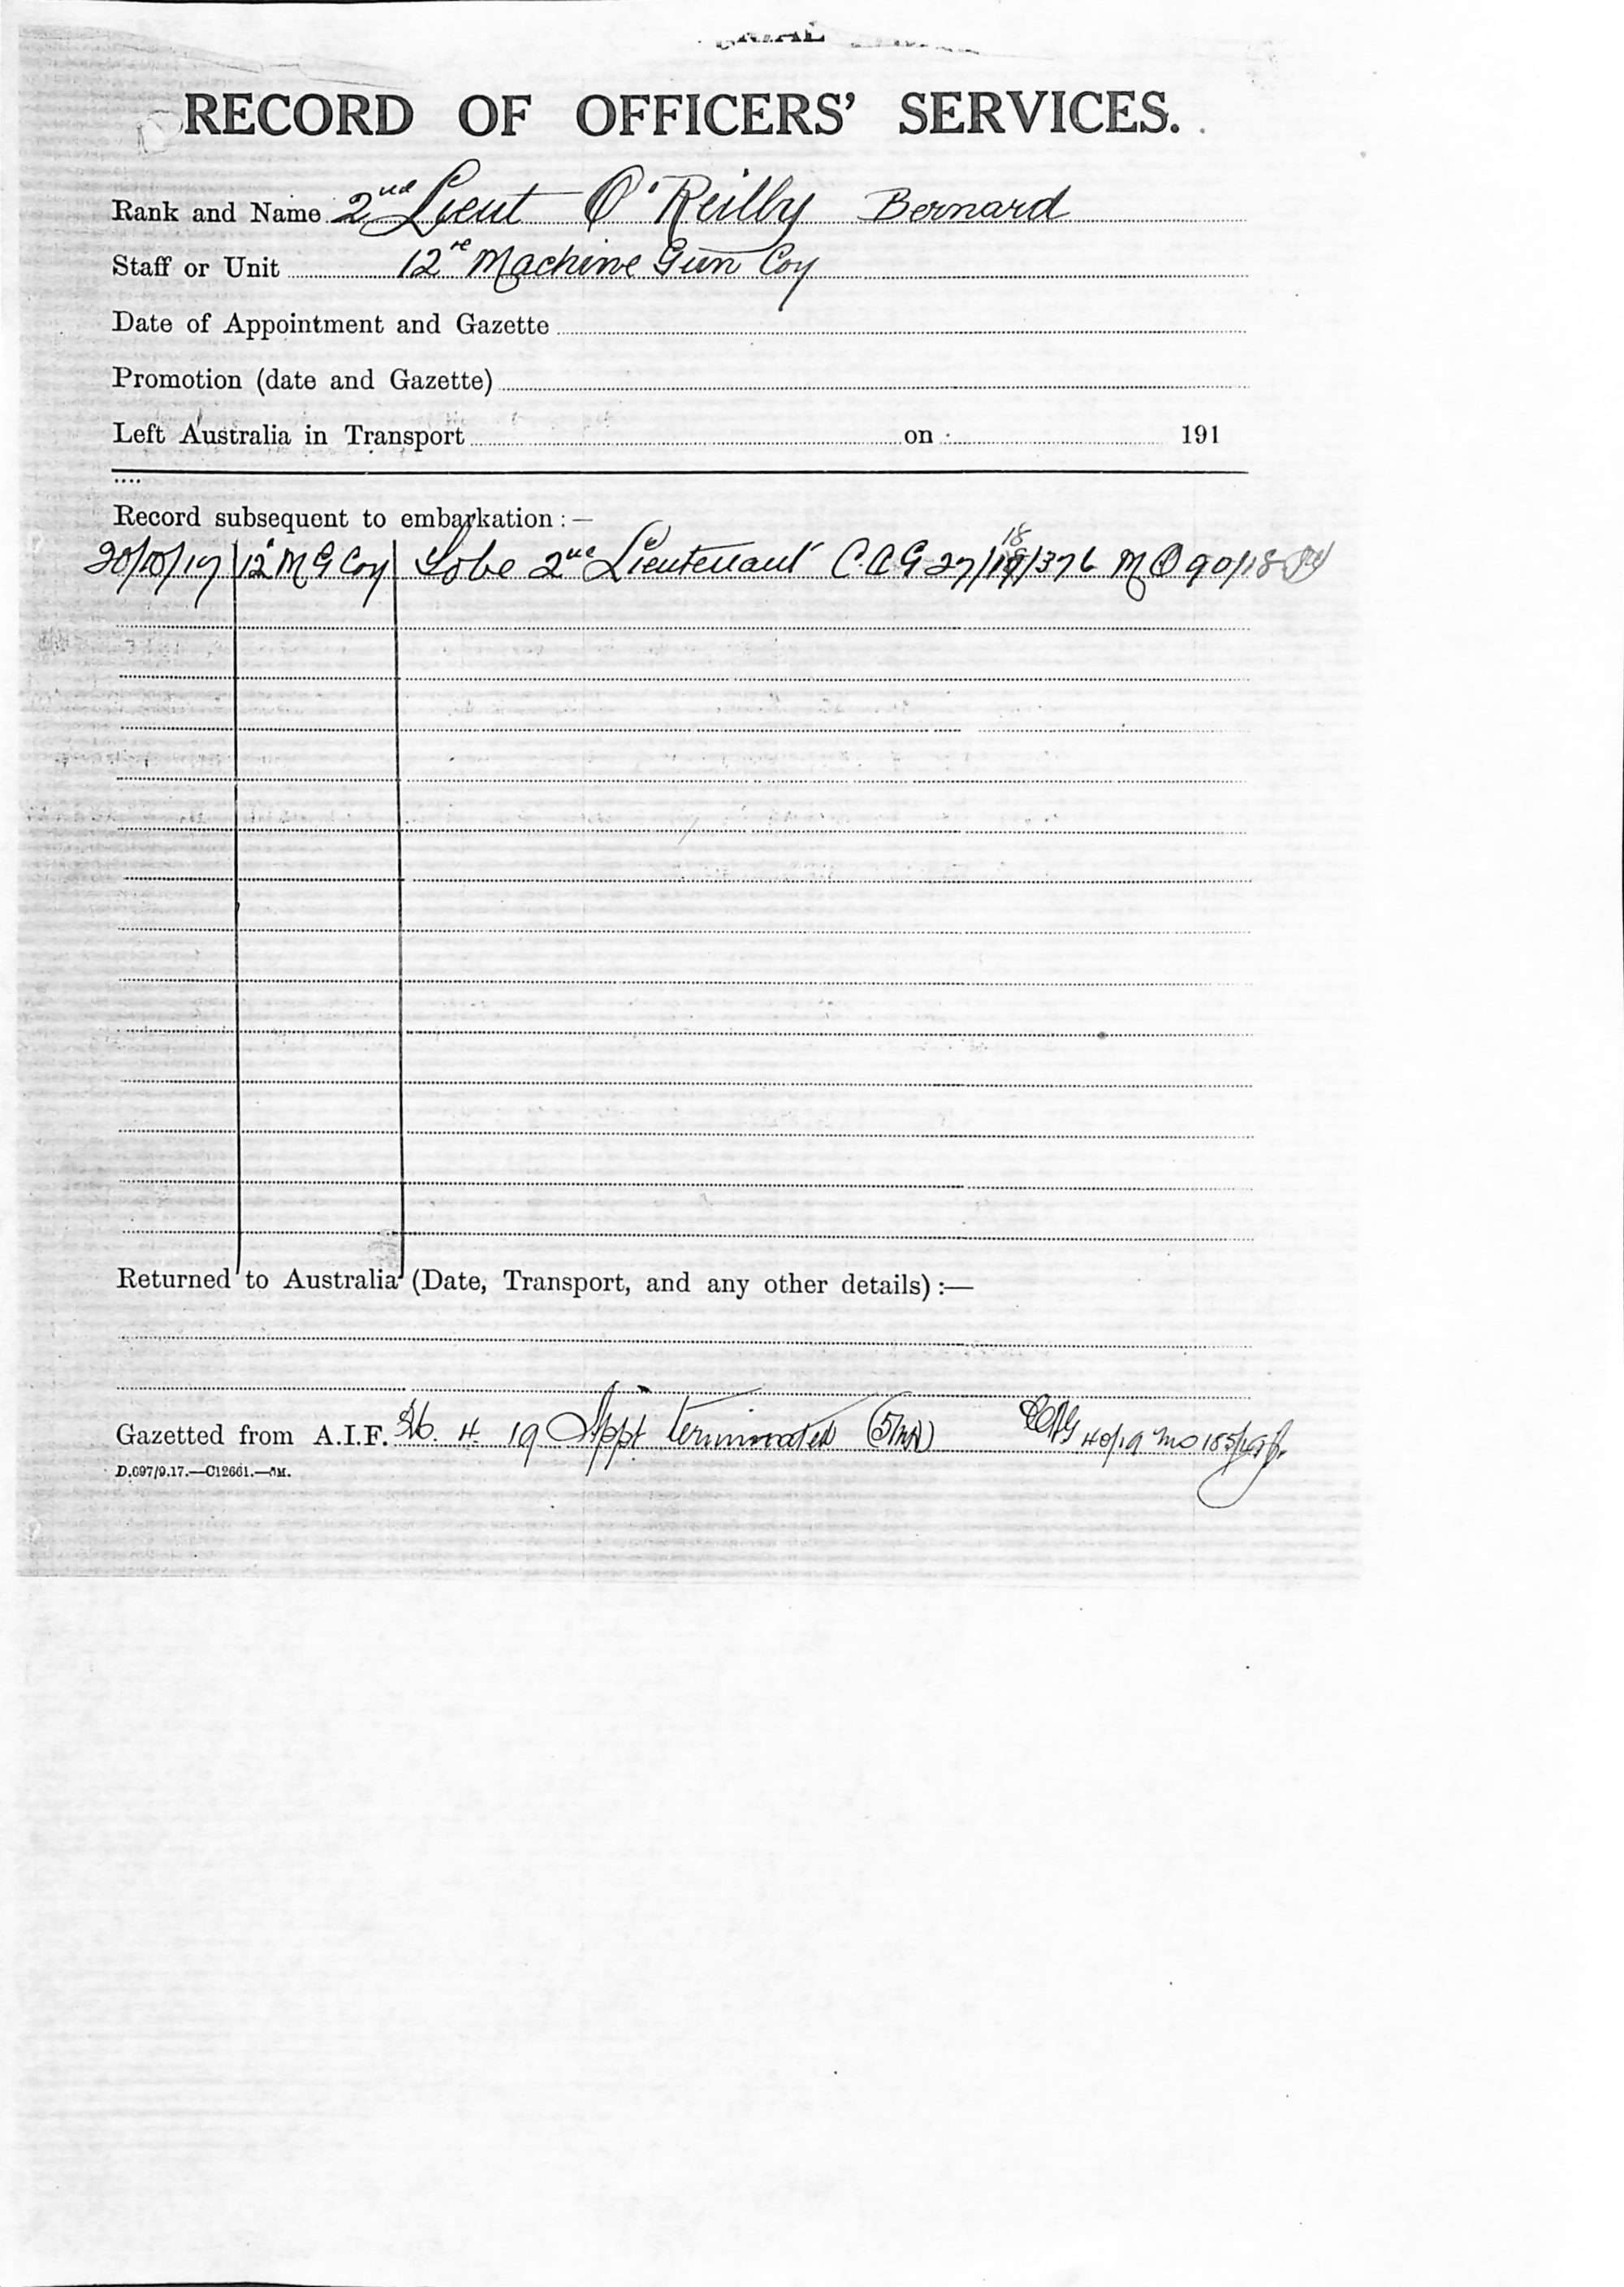 RECORD OF OFFICERS' SERVICES.
Rank and Name 2nd Lieut O'Reilly Bernard
Staff or Unit 12 Machine Gun Coy
Date of Appointment and Gazette
Promotion (date and Gazette)
Left Australia in Transport on 191
Record subsequent to embarkation:—
18
12 M G Coy To be 2nd Lieutenant C.A.G. 27/18/376 M O 90/18
Returned to Australia (Date, Transport, and any other details):—
Gazetted from A.I.F. 4 19 Appt terminated CAG 40/19 MO
D.697/9.17.—C12661.—5M.